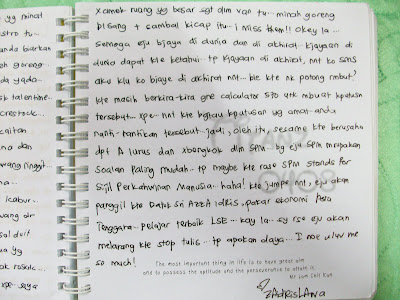 yg minat
stru tu..
anda biarkan
ah goreng..
da yada..
k talentine..
crestock..
caitan
ina dan
wang ringgit
an..
icabur..
wang dlr
sual dua
ua yg
ok toskik...
xpe.. saya
xcamek ruang yg besar sgt dlm van tu.. minah goreng
pisang + sambal kicap itu.. i miss them!! Okey la..
semoga eju bjaya di dunia dan di akhirat.. kjayaan di
dunia dapat kte ketahui.. tp kjayaan di akhirat, nnt ko sms
aku klu ko bjaye di akhirat nnt.. ble kte nk potong rmbut?
kte masih berkira-kira gne calculator 570 utk mbuat kputusn
tersebut.. xpe.. nnt kte bgtau kputusan yg amat anda
nanti-nantikan tersebut.. jadi, oleh itu, sesame kte berusaha
dpt A lurus dan xbengkok dlm SPM.. bg eju SPM merupakan
soalan paling mudah.. tp maybe kte rase SPM stands for
Sijil Perkahwinan Manusia.. haha! kte jumpe nnt, eju akan
panggil kte Datuk Sri Azza idris, pakar ekonomi Asia
Tenggara.. pelajar terbaik LSE.. kay la.. sy rse eju akan
melarang kte stop tulis.. tp apakan daya.. I noe u luv me
so much!
The most important thing in life is to have great aim
and to possess the aptitude and the perseverance to attain it.
Mr Lum Chil Kun
ZADRISLANA